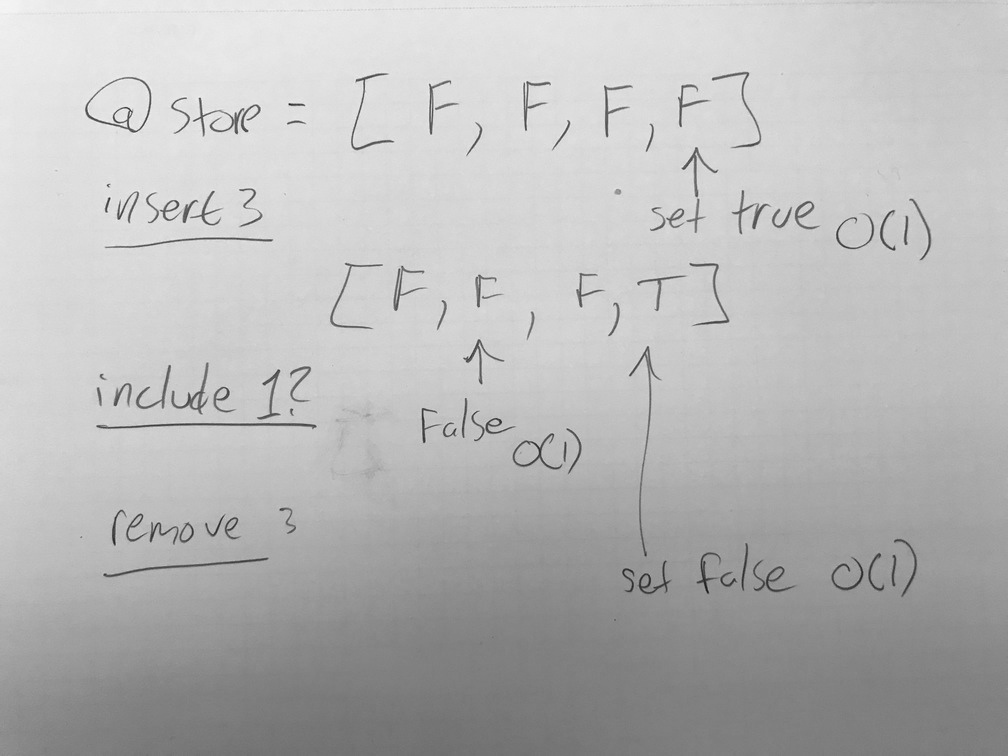 @ store = [ F, F, F, F ]
insert 3
set true O(1)
[ F, F, F, T ]
include 1?
False O(1)
remove 3
set false O(1)